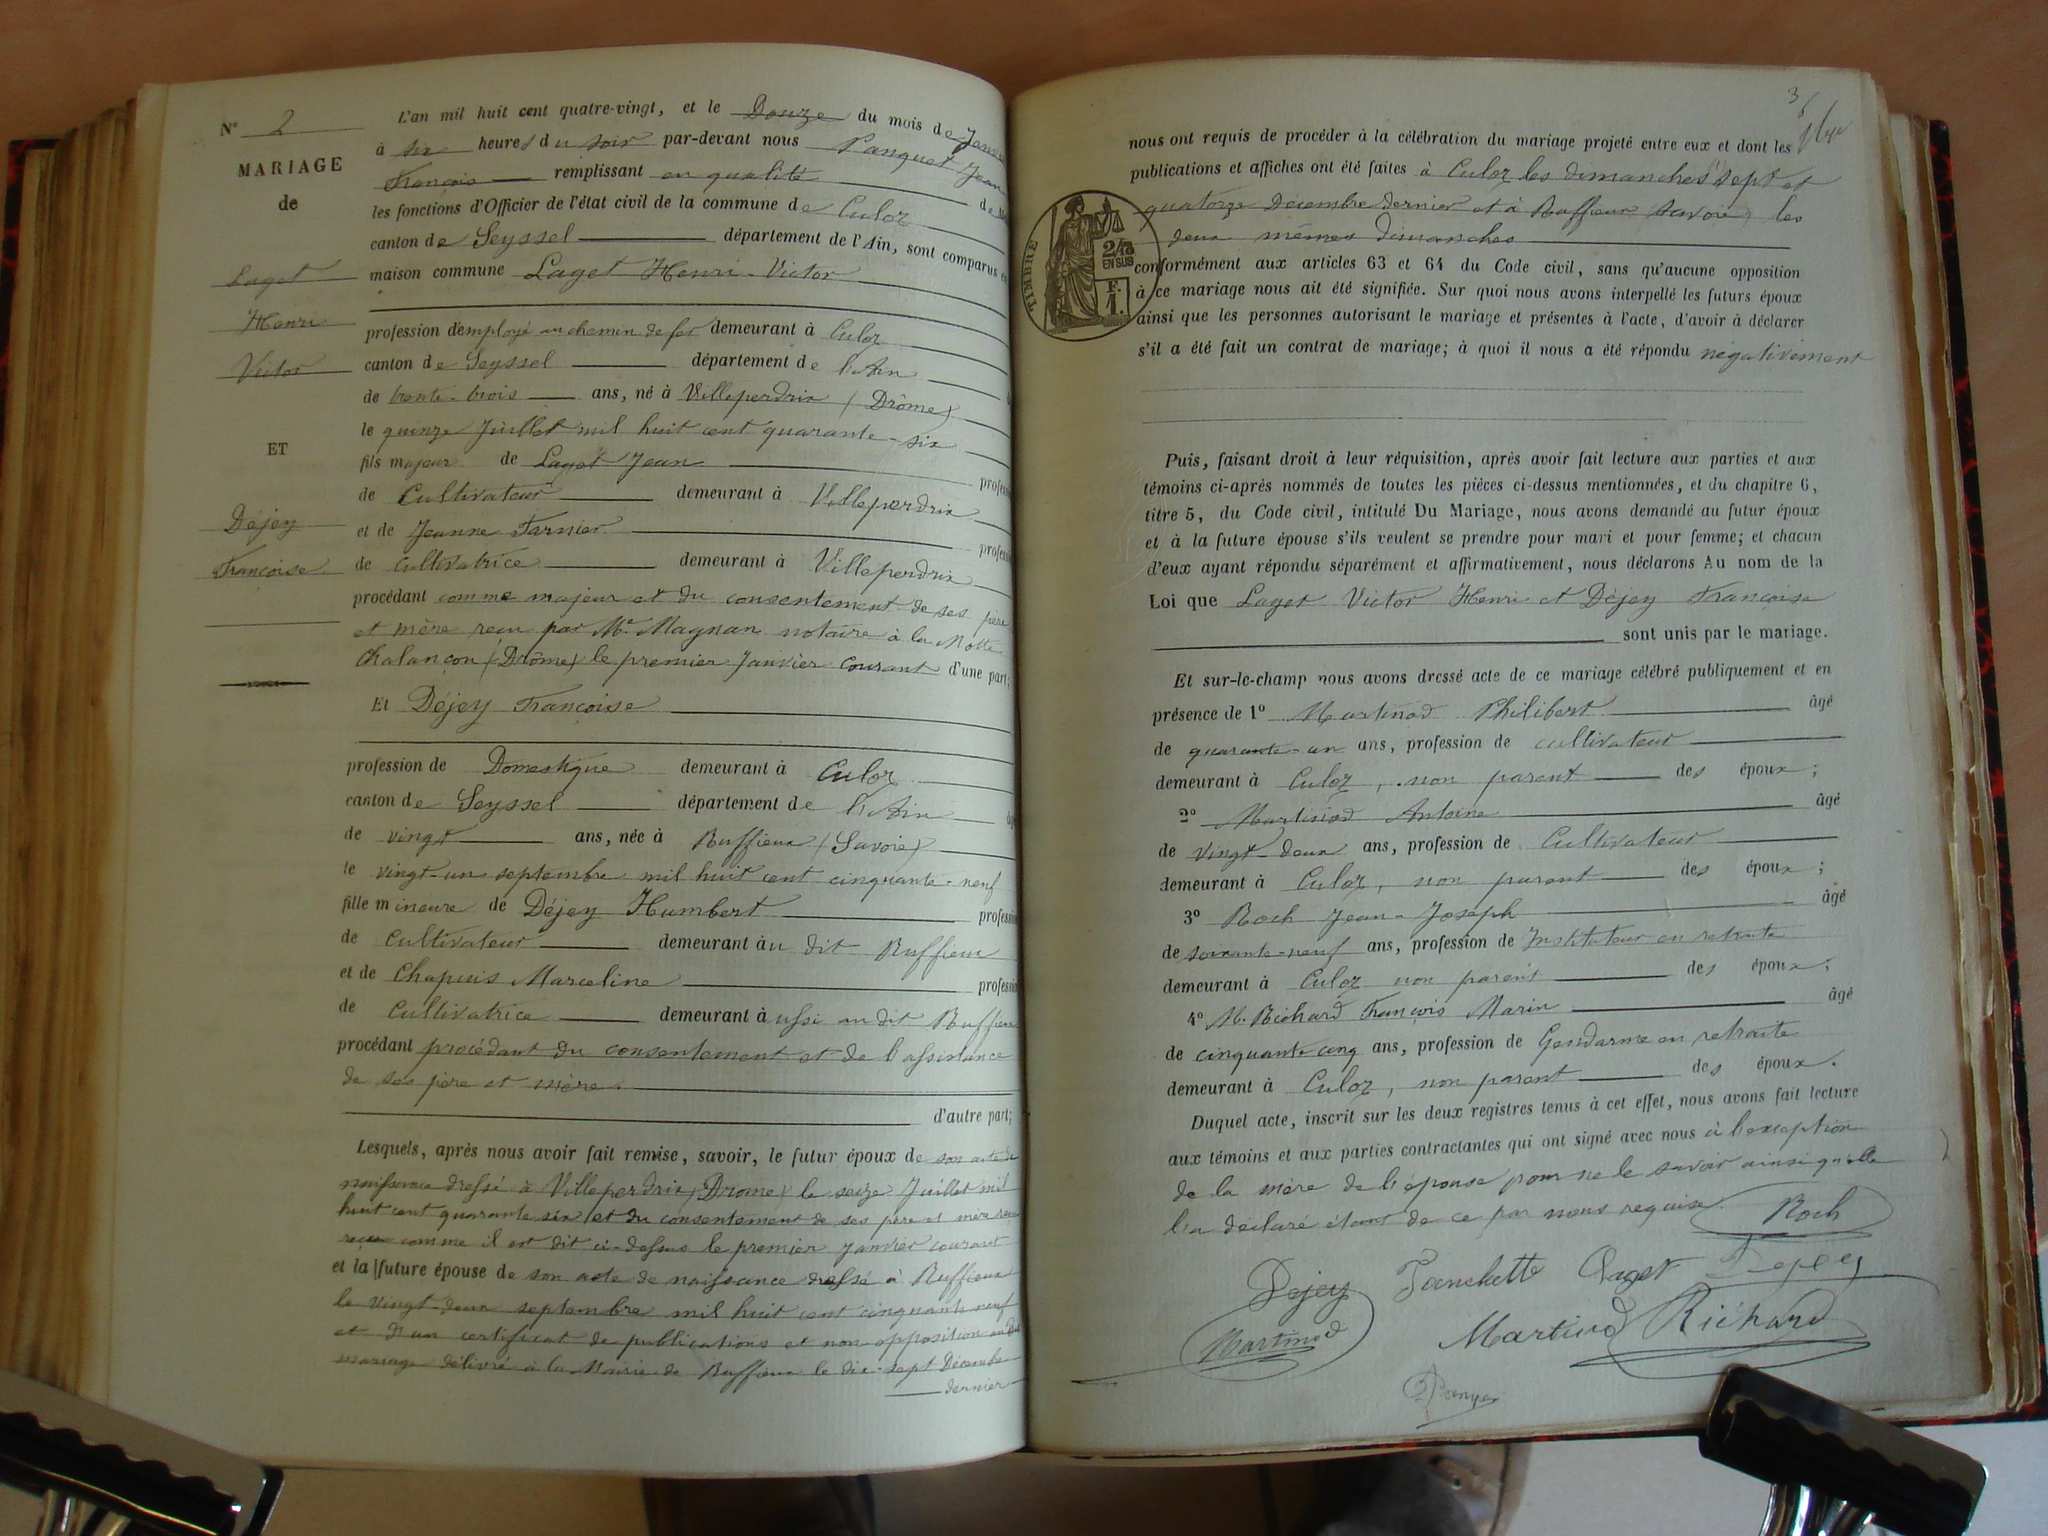 N° 2
MARIAGE
de
Laget
Henri
Victor
ET
Déjey
Françoise
L'an mil huit cent quatre-vingt, et le Douze du mois de Janvier
à six heures du soir par-devant nous Panguet Jean
François remplissant en qualité de
les fonctions d'Officier de l'état civil de la commune de Culoz
canton de Seyssel département de l'Ain, sont comparus en
maison commune Laget Henri-Victor
profession d'employé au chemin de fer demeurant à Culoz
canton de Seyssel département de l'Ain
de trente-trois ans, né à Villeperdrix (Drôme)
le quinze Juillet mil huit cent quarante-six
fils majeur de Laget Jean profession
de Cultivateur demeurant à Villeperdrix
et de Jeanne Farnier profession
de cultivatrice demeurant à Villeperdrix
procédant comme majeur et du consentement de ses père
et mère reçu par Me Magnan notaire à la Motte
Chalançon (Drôme) le premier Janvier courant d'une part;
Et Déjey Françoise
profession de Domestique demeurant à Culoz
canton de Seyssel département de l'Ain
de vingt ans, née à Ruffieux (Savoie)
le vingt-un septembre mil huit cent cinquante-neuf
fille mineure de Déjey Humbert profession
de cultivateur demeurant au dit Ruffieux
et de Chapuis Marceline profession
de Cultivatrice demeurant aussi au dit Ruffieux
procédant procédant du consentement et de l'assistance
de ses père et mère
d'autre part;
Lesquels, après nous avoir fait remise, savoir, le futur époux de son acte de
naissance dressé à Villeperdrix (Drôme) le seize Juillet mil
huit cent quarante six et du consentement de ses père et mère reçu
reçu comme il est dit ci-dessus le premier Janvier courant
et la future épouse de son acte de naissance dressé à Ruffieux
le vingt-deux septembre mil huit cent cinquante neuf
et d'un certificat de publications et non-opposition au dit
mariage délivré à la Mairie de Ruffieux le dix-sept Décembre
dernier
3
nous ont requis de procéder à la célébration du mariage projeté entre eux et dont les
publications et affiches ont été faites à Culoz les dimanches sept et
quatorze Décembre dernier et à Ruffieux (Savoie) les
deux mêmes dimanches
TIMBRE
2/10
EN SUS
F.
1.
conformément aux articles 63 et 64 du Code civil, sans qu'aucune opposition
à ce mariage nous ait été signifiée. Sur quoi nous avons interpellé les futurs époux
ainsi que les personnes autorisant le mariage et présentes à l'acte, d'avoir à déclarer
s'il a été fait un contrat de mariage; à quoi il nous a été répondu négativement
Puis, faisant droit à leur réquisition, après avoir fait lecture aux parties et aux
témoins ci-après nommés de toutes les pièces ci-dessus mentionnées, et du chapitre 6,
titre 5, du Code civil, intitulé Du Mariage, nous avons demandé au futur époux
et à la future épouse s'ils veulent se prendre pour mari et pour femme; et chacun
d'eux ayant répondu séparément et affirmativement, nous déclarons Au nom de la
Loi que Laget Victor Henri et Déjey Françoise
sont unis par le mariage.
Et sur-le-champ nous avons dressé acte de ce mariage célébré publiquement et en
présence de 1° Martinod Philibert âgé
de quarante-un ans, profession de cultivateur
demeurant à Culoz, non parent des époux;
2° Martinod Antoine âgé
de vingt-deux ans, profession de Cultivateur
demeurant à Culoz, non parent des époux;
3° Roch Jean-Joseph âgé
de soixante-neuf ans, profession de Instituteur en retraite
demeurant à Culoz non parent des époux;
4° M. Richard François Marin âgé
de cinquante cinq ans, profession de Gendarme en retraite
demeurant à Culoz, non parent des époux.
Duquel acte, inscrit sur les deux registres tenus à cet effet, nous avons fait lecture
aux témoins et aux parties contractantes qui ont signé avec nous à l'exception
de la mère de l'épouse pour ne le savoir ainsi qu'elle
l'a déclaré étant de ce par nous requise. Roch
Dejey Fanchette Laget Dejey
Martinod Martinod Richard